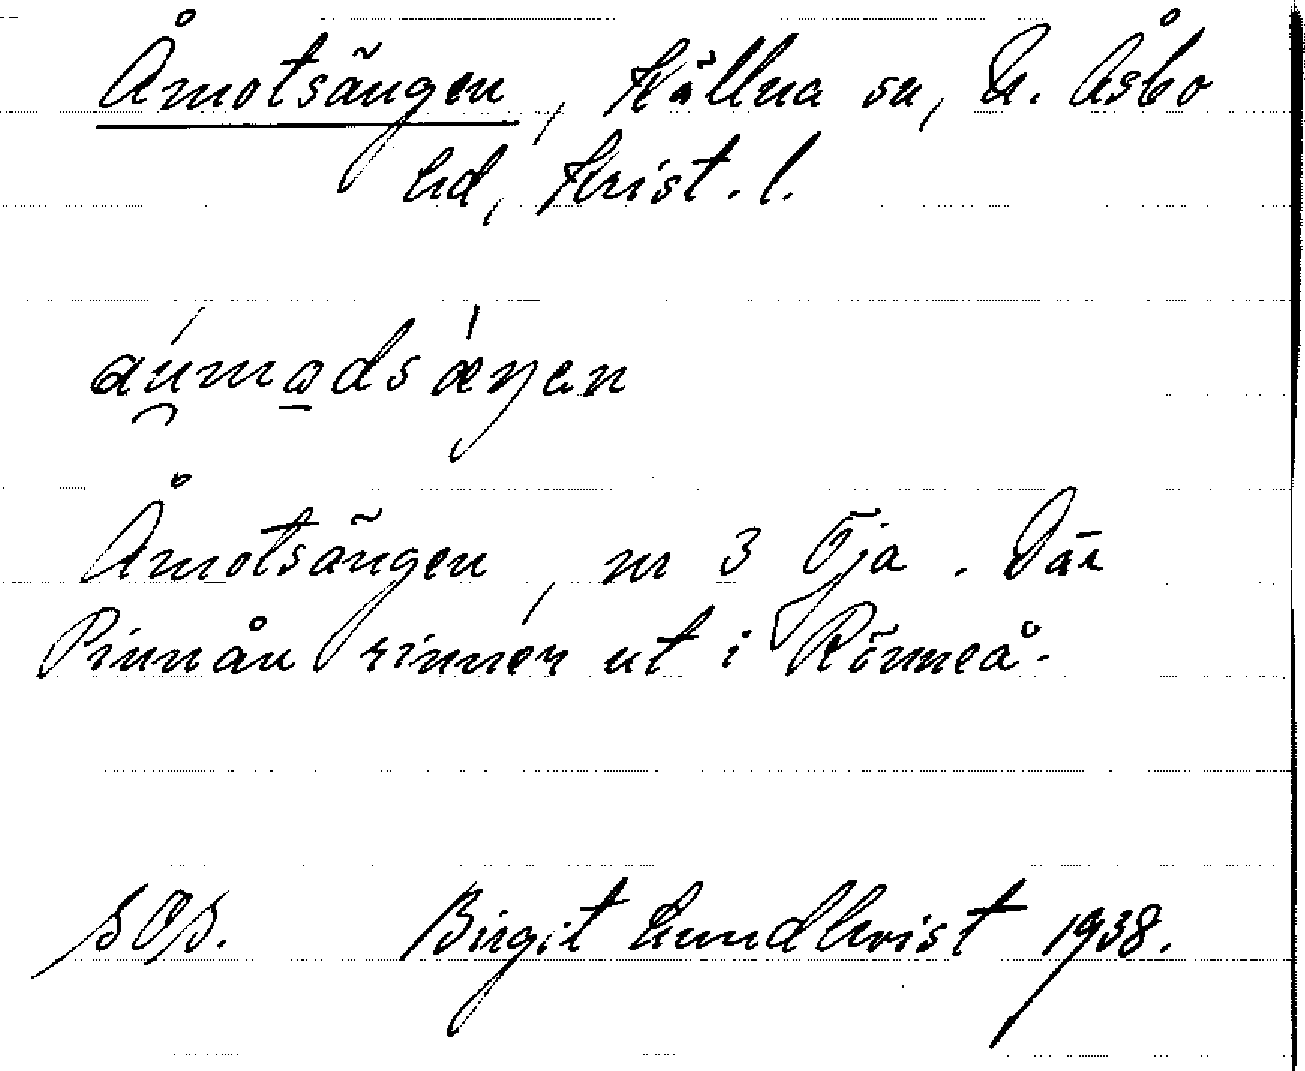 Åmotsängen, Källna sn, N. Åsbo
hd, Krist. l.
au̯mɑdsæŋen
Åmotsängen, nr 3 Öja. Där
Pinnån rinner ut i Rönneå.
SOS. Birgit Lundkvist 1938.